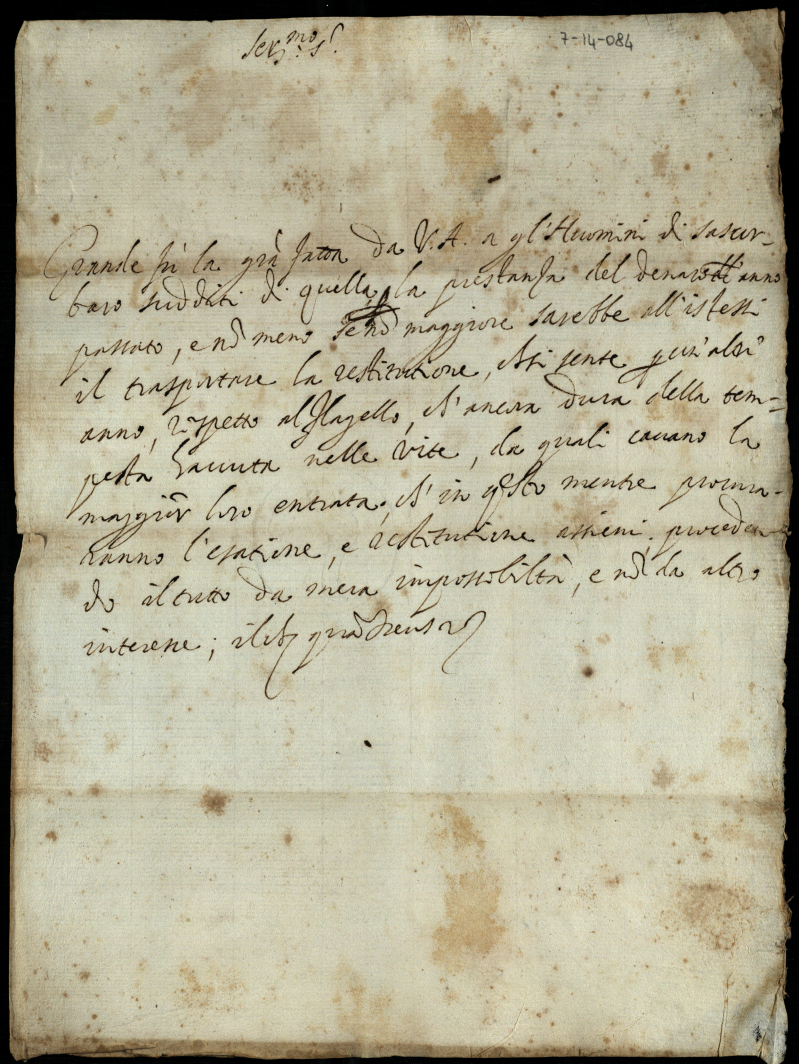 Ser.mo S.r
7-14-084
Grande fù la gra fatta da V.A. a gl'Huomini di
baro sudditi di quella, la prestanza del denaro anno
passato, e nõ meno se nõ maggiore sarebbe all'istessi
il trasportare la restitutione, ch'si sente quest'altr'
anno, rispetto al flagello, ch'ancora dura della tem=
pesta havuta nelle vite, da quali cavano la
maggior loro entrata, ch'in qsto mentre procura-
ranno l'esatione, e restitutione assieme, proceden
do il tutto da mera impossobiltà, e nõ da altro
interesse; il